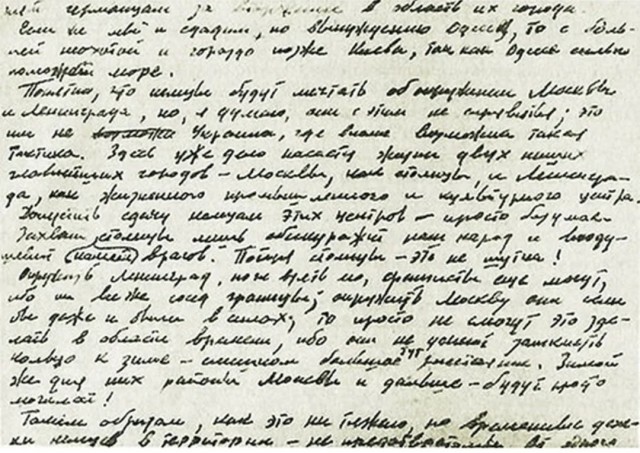 немцам за вторжение в область их города.
Если же мы и сдадим, по вынуждению Одессу, то с боль-
шей неохотой и гораздо позже Киева, так как Одессе сильно
поможет море.
Понятно, что немцы будут мечтать об окружении Москвы
и Ленинграда, но, я думаю, они с этим не справятся; это
им не Украина, где вполне возможна такая
тактика. Здесь уже дело касается жизни двух наших
главнейших городов – Москвы, как столицы, и Ленингра-
да, как жизненного промышленного и культурного центра.
Допустить сдачу немцам этих центров – просто безумие.
Захват столицы лишь обескуражит наш народ и вооду-
шевит врагов. Потеря столицы – это не шутка!
Окружить Ленинград, но не взять его, фашисты ещё могут,
ибо он всё же сосед границы; окружить Москву они если
бы даже и были в силах, то просто не смогут это сде-
лать в области времени, ибо они не успеют замкнуть
кольцо к зиме – слишком большое тут расстояние. Зимой
же для них районы Москвы и дальше – будут просто
могилой!
Таким образом, как это ни тяжело, но временные
немцев в территории – не